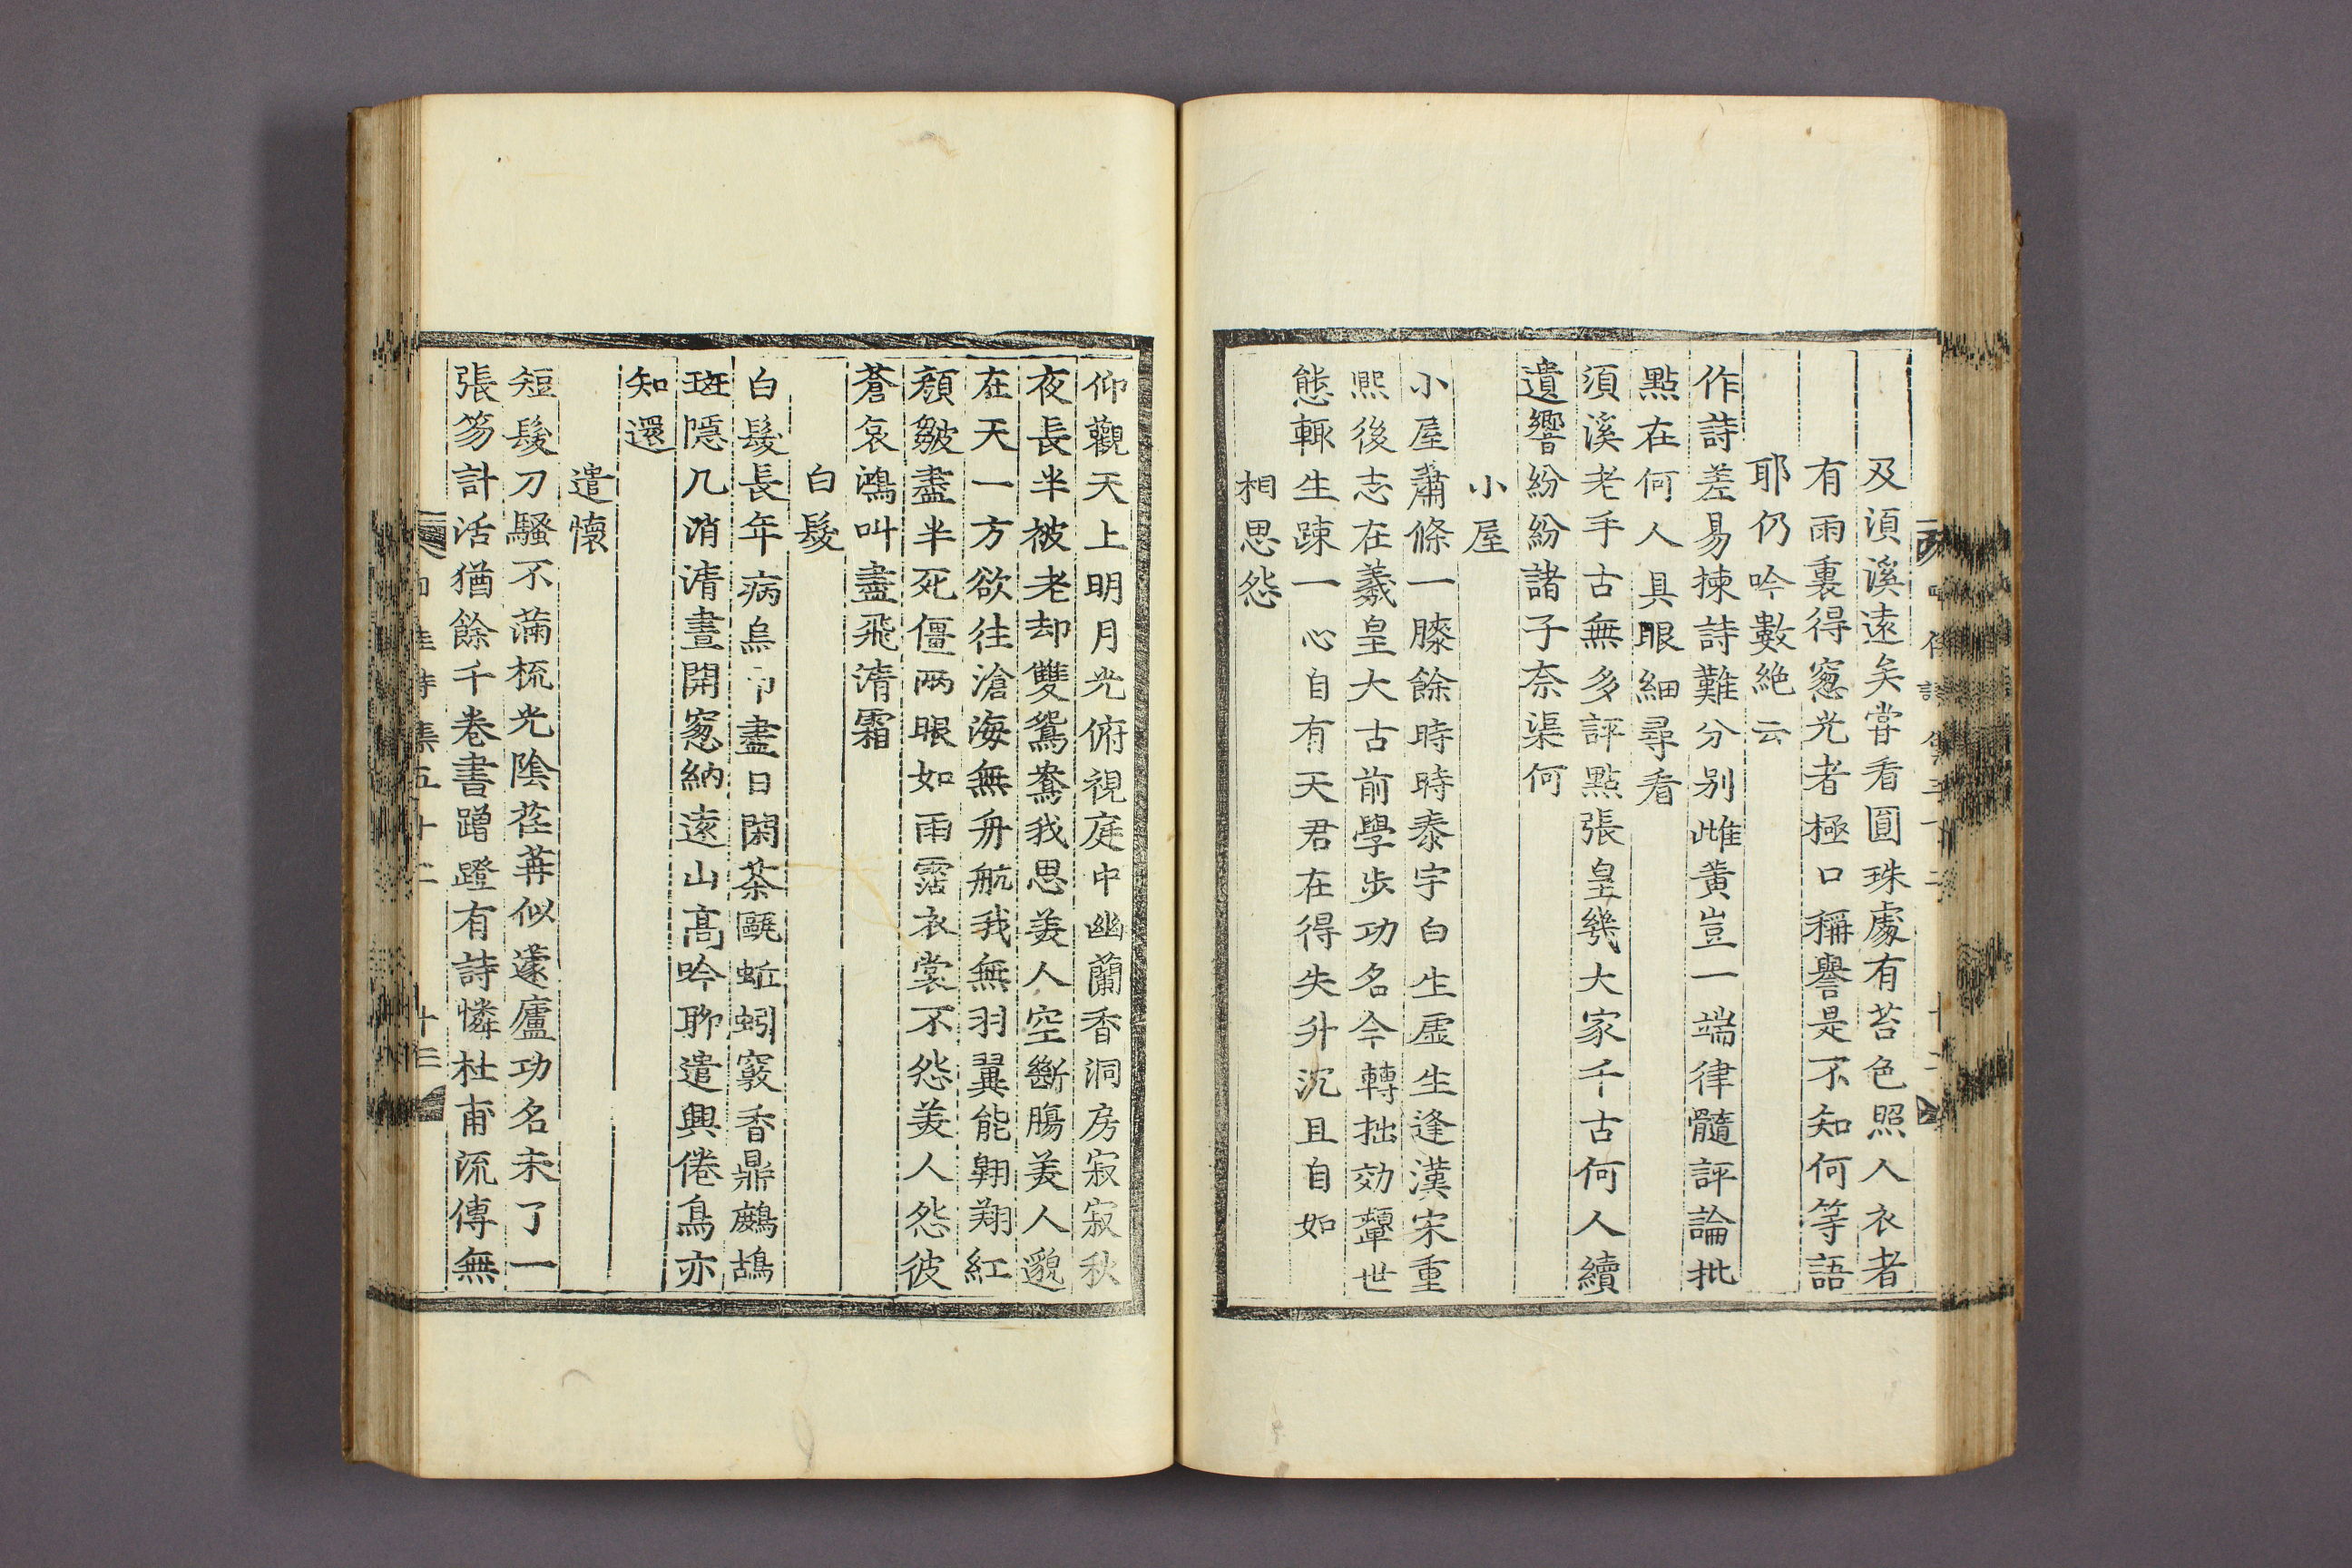 及湏溪遠矣甞看圓珠處有苔色照人衣者
有雨裏得窓光者極口稱譽是不知何等語
耶仍吟數絶云
作詩差易揀詩難分別雌黄豈一端律髓評論批
點在何人具眼細尋看
須溪老手古無多評點張皇幾大家千古何人續
遺響紛紛諸子奈渠何
小屋
小屋蕭條一膝餘時時泰宇白生虛生逢漢宋重
熙後志在羲皇大古前學步功名今轉拙効顰世
態輙生踈一心自有天君在得失升沉且自如
相思怨
仰觀天上明月光俯視庭中幽蘭香洞房寂寂秋
夜長半被老却雙鴛鴦我思美人空斷膓美人邈
在天一方欲往滄海無舟航我無羽翼能翺翔紅
顔皺盡半死僵兩眼如雨霑衣裳不怨美人怨彼
蒼哀鴻叫盡飛清霜
白髮
白髮長年病烏巾盡日閑茶甌蚯蚓竅香鼎鷓鴣
斑隱几消清晝開窓納遠山高吟聊遣興倦鳥亦
知還
遣懷
短髮刀騷不滿梳光陰荏苒似蘧廬功名未了一
張笏計活猶餘千卷書蹭蹬有詩憐杜甫流傳無
四佳詩集五十二 十三